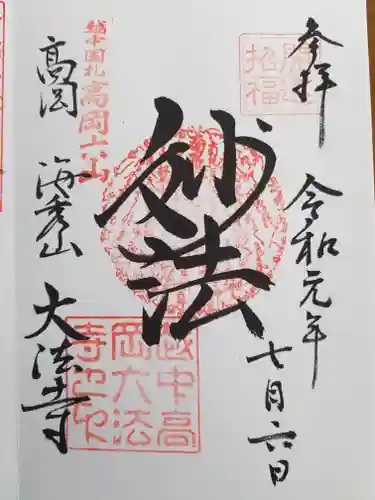 参拝
令和元年
七月六日
開運
招福
妙法
越中国札
高岡六山
越中高
岡大法
寺之印
高岡
海秀山
大法寺